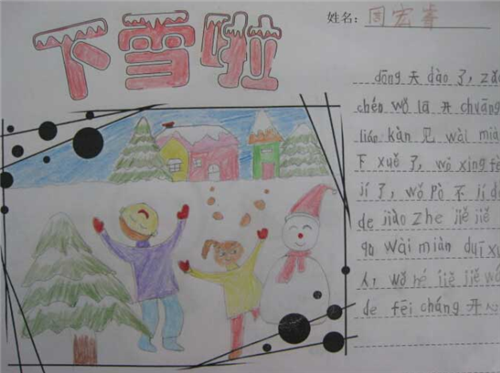 下雪啦
姓名：周宏春
dōng 天 dào 了，zǎo
chén wǒ lā 开 chuāng
lián kàn 见 wài miàn
下 xuě 了，wǒ xīng fèn
jí 了，wǒ pò 不 jí dài
de jiào zhe jiě jiě
qù wài miàn duī xuě
人，wǒ hé jiě jiě wán
de fēi cháng 开心